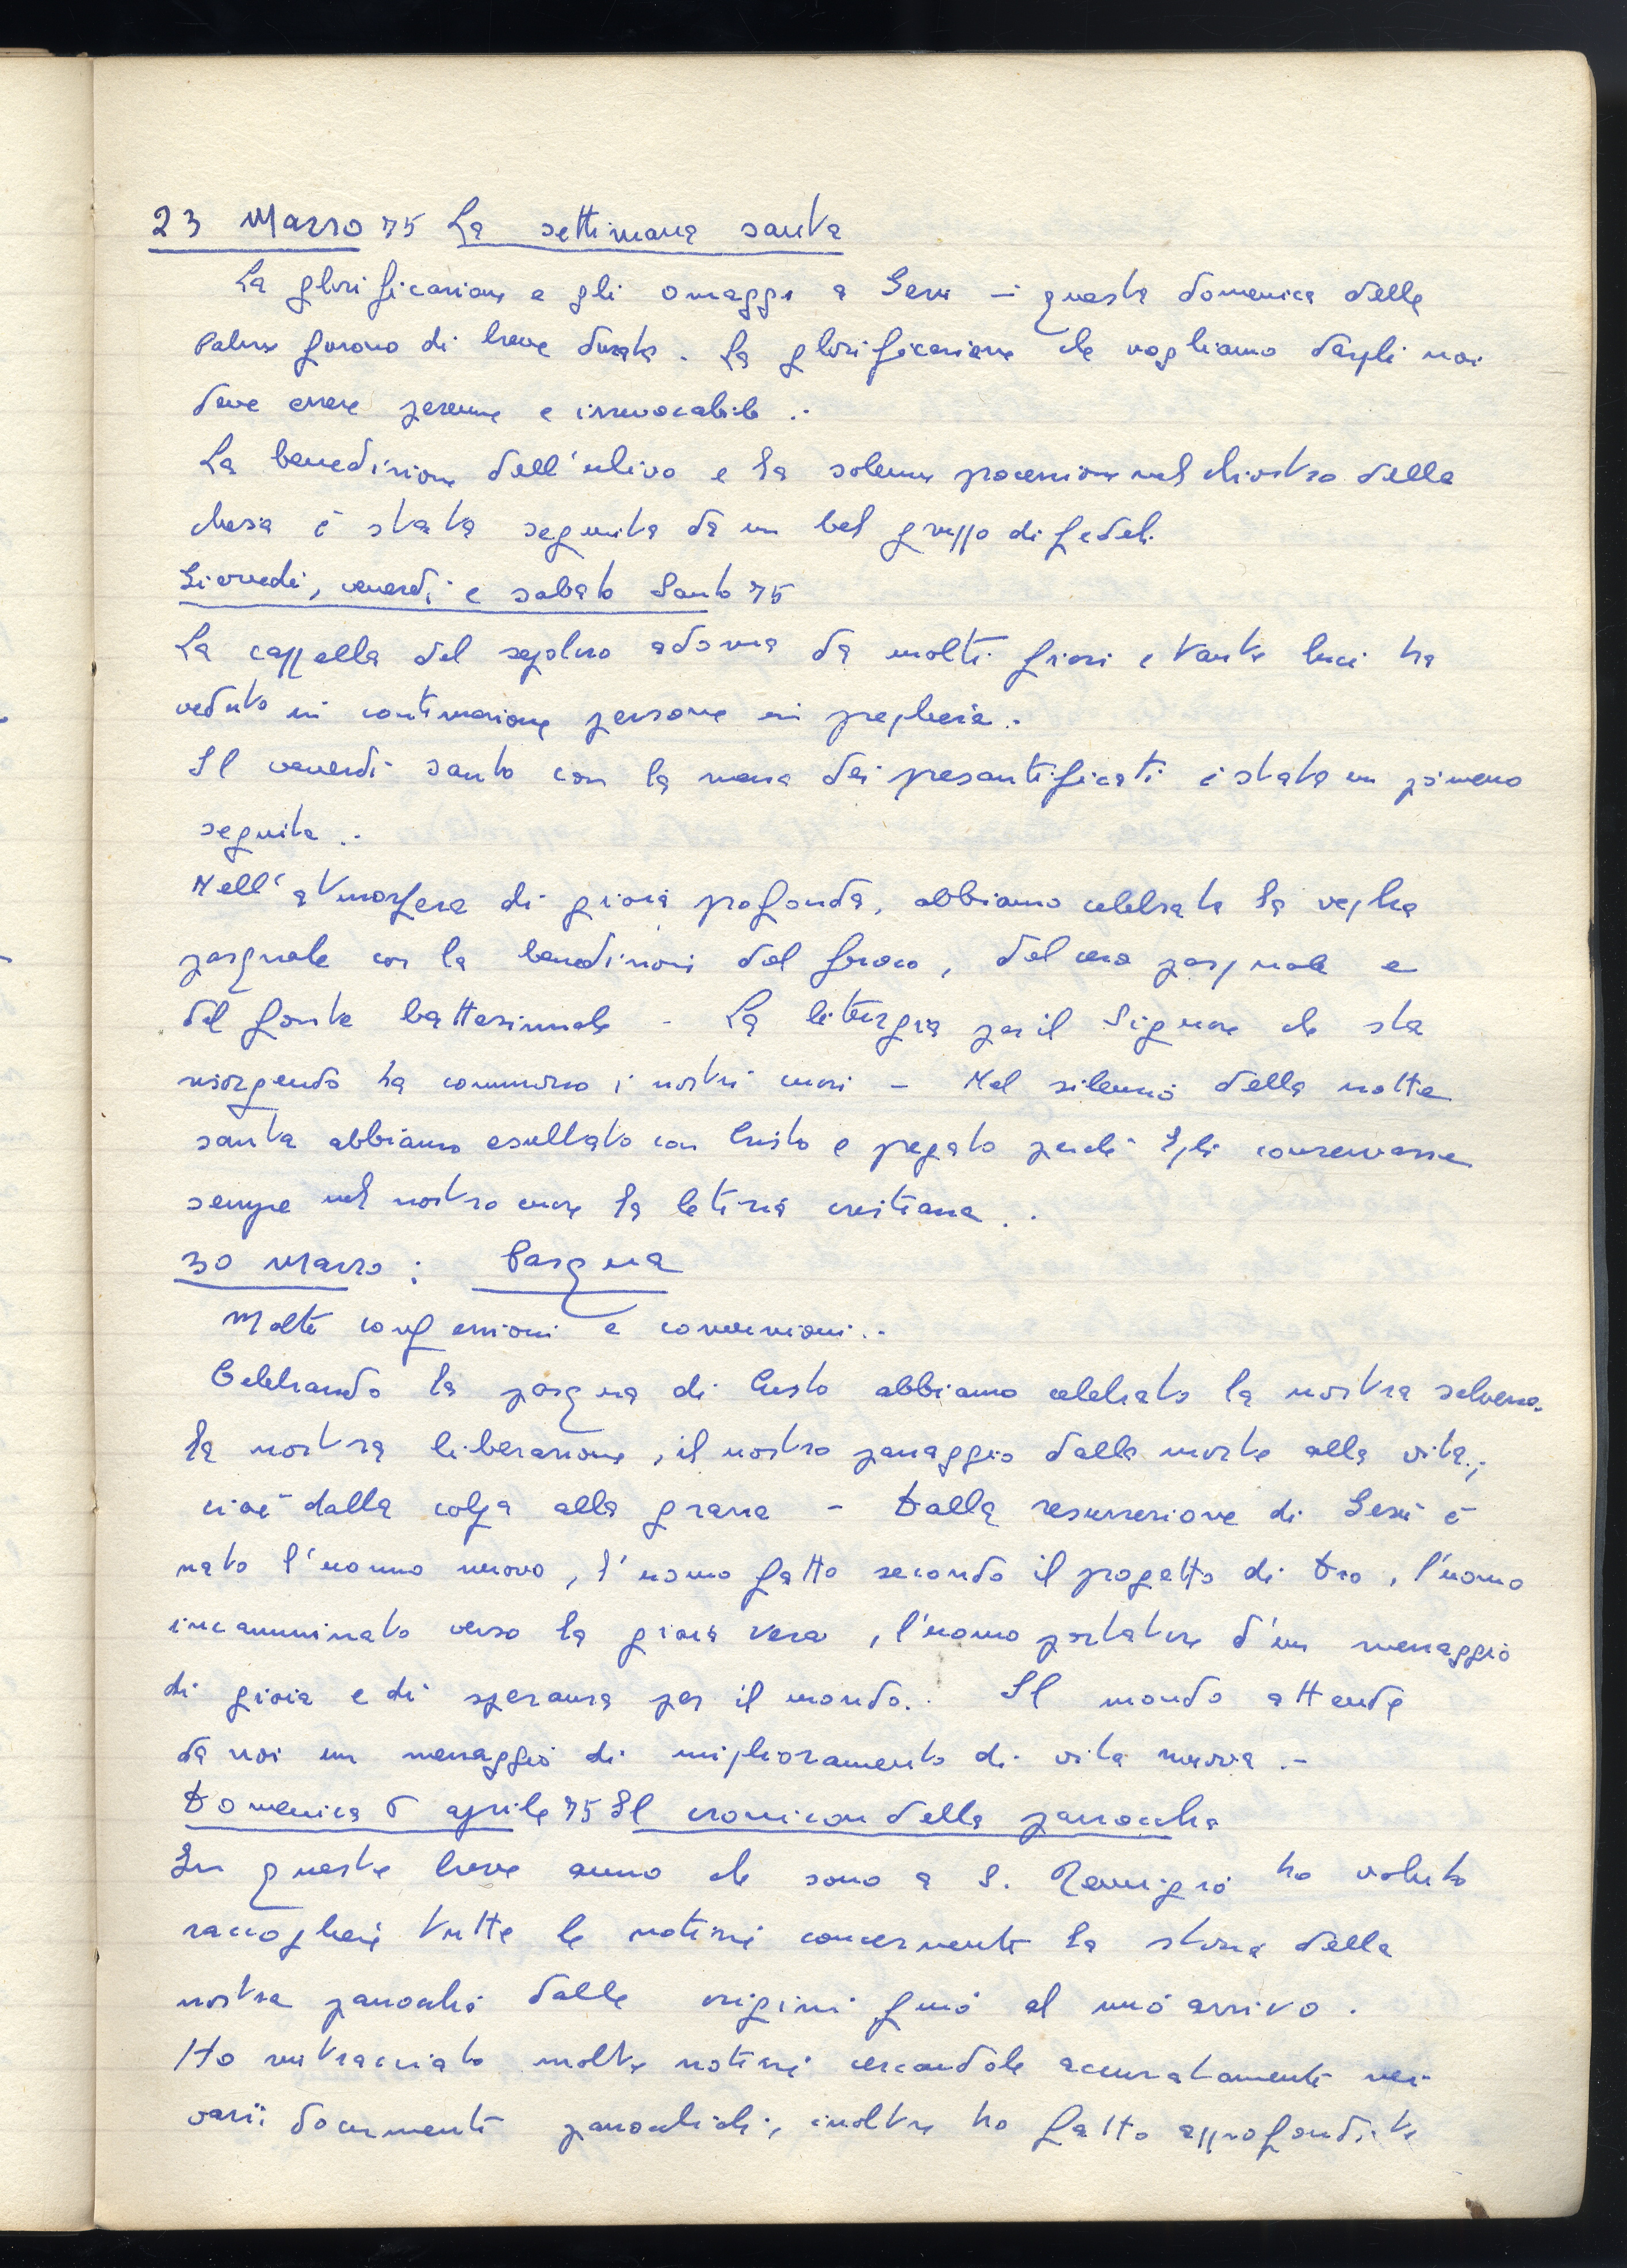 23 Marzo 75 La settimana santa
La glorificazione e gli omaggi a Gesù - questa domenica delle
Palme furono di breve durata. La glorificazione che vogliamo dargli noi
deve essere perenne e irrevocabile..
La benedizione dell'ulivo e la solenne processione nel chiostro della
chiesa è stata seguita da un bel gruppo di fedeli.
Giovedì, venerdì e sabato Santo 75
La cappella del sepolcro adorna da molti fiori e tante luci ha
veduto in continuazione persone in preghiera.
Il venerdì santo con la messa dei presantificati è stata un pò meno
seguita..
Nell'atmosfera di gioia profonda, abbiamo celebrata la veglia
pasquale con la benedizioni del fuoco, del cero pasquale e
del fonte battesimale - La liturgia per il Signore che sta
risorgendo ha commosso i nostri cuori - Nel silenzio della notte
santa abbiamo esultato con Cristo e pregato perchè Egli conservasse
sempre nel nostro cuore la letizia cristiana..
30 Marzo: Pasqua
Molte confessioni e conversioni..
Celebrando la pasqua di Cristo abbiamo celebrato la nostra salvezza.
la nostra liberazione, il nostro passaggio dalla morte alla vita.;
cioè dalla colpa alla grazia - Dalla resurrezione di Gesù è
nato l'uomo nuovo, l'uomo fatto secondo il progetto di Dio, l'uomo
incamminato verso la gioia vera, l'uomo portatore d'un messaggio
di gioia e di speranza per il mondo.. Il mondo attende
da noi un messaggio di miglioramento di vita nuova.-
Domenica 6 aprile 75 Il cronicon della parrocchia
In queste breve anno che sono a S. Remigio ho voluto
raccogliere tutte le notizie concernente la storia della
nostra parrocchia dalle origini fino al mio arrivo.
Ho rintracciato molte notizie cercandole accuratamente nei
varii documenti parrocchiali, inoltre ho fatto approfondite